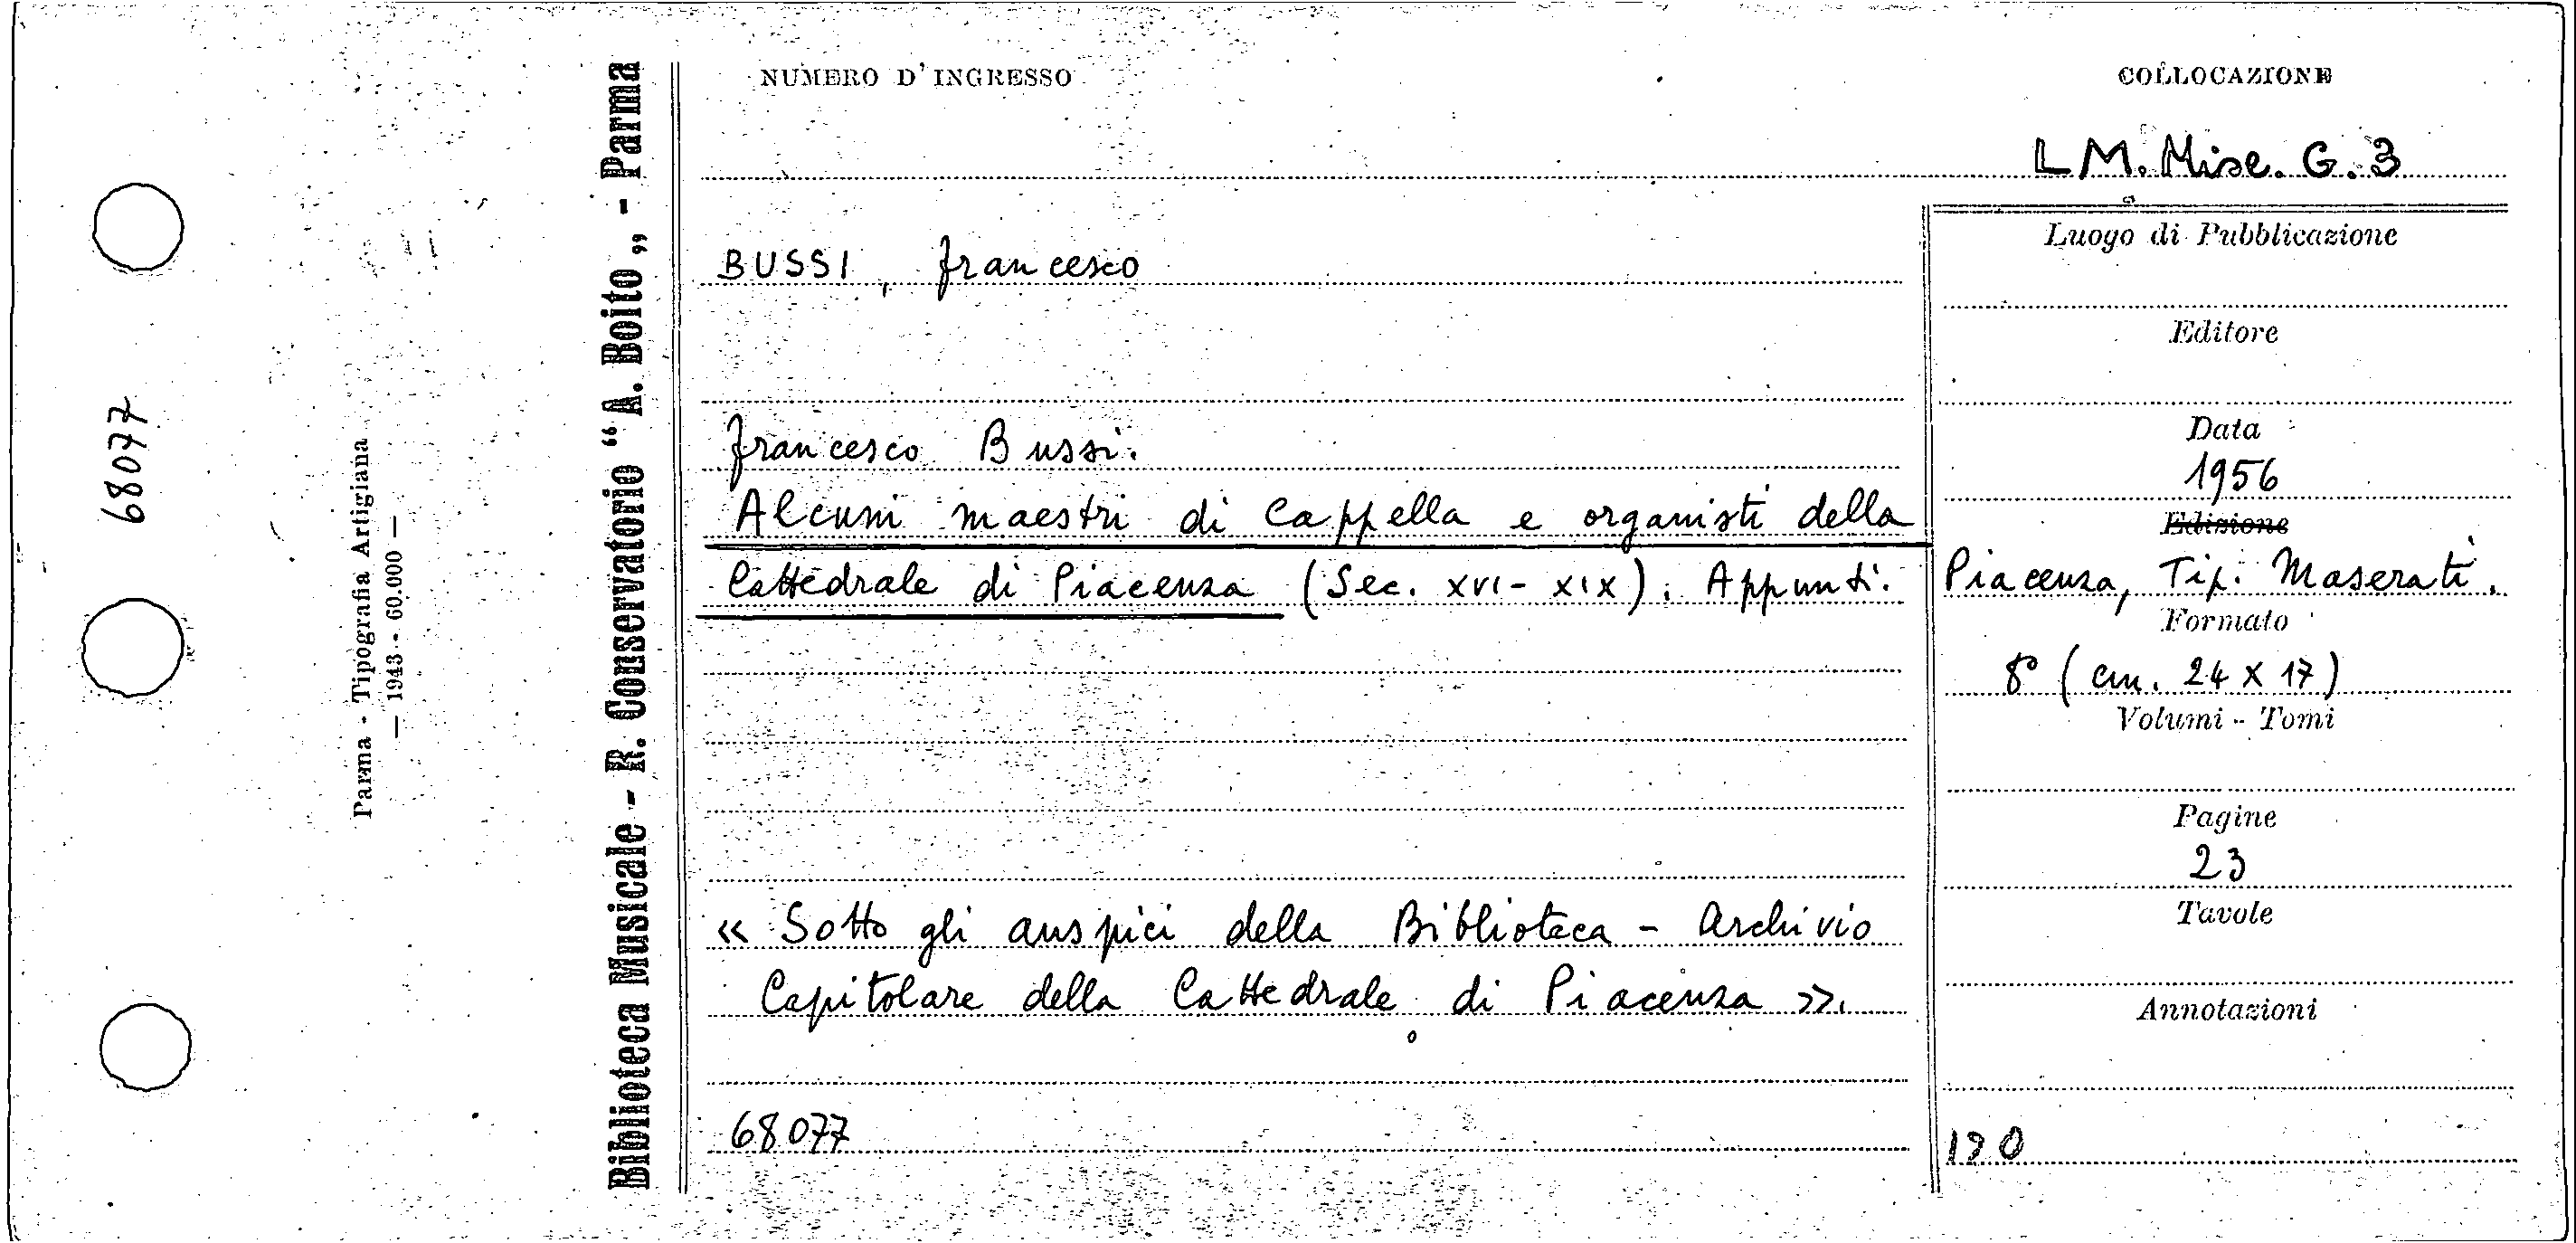 68077
Parma - Tipografia Artigiana
— 1943 - 60.000 —
Biblioteca Musicale - R. Conservatorio “A. Boito„ - Parma
NUMERO D'INGRESSO
COLLOCAZIONE
L M. Misc. G. 3
BUSSI, Francesco
Francesco Bussi.
Alcuni maestri di Cappella e organisti della
Cattedrale di Piacenza (Sec. XVI - XIX). Appunti.
« Sotto gli auspici della Biblioteca - Archivio
Capitolare della Cattedrale di Piacenza ».
68077
Luogo di Pubblicazione
Editore
Data
1956
Edizione
Piacenza, Tip. Maserati.
Formato
8° (cm. 24 X 17)
Volumi - Tomi
Pagine
23
Tavole
Annotazioni